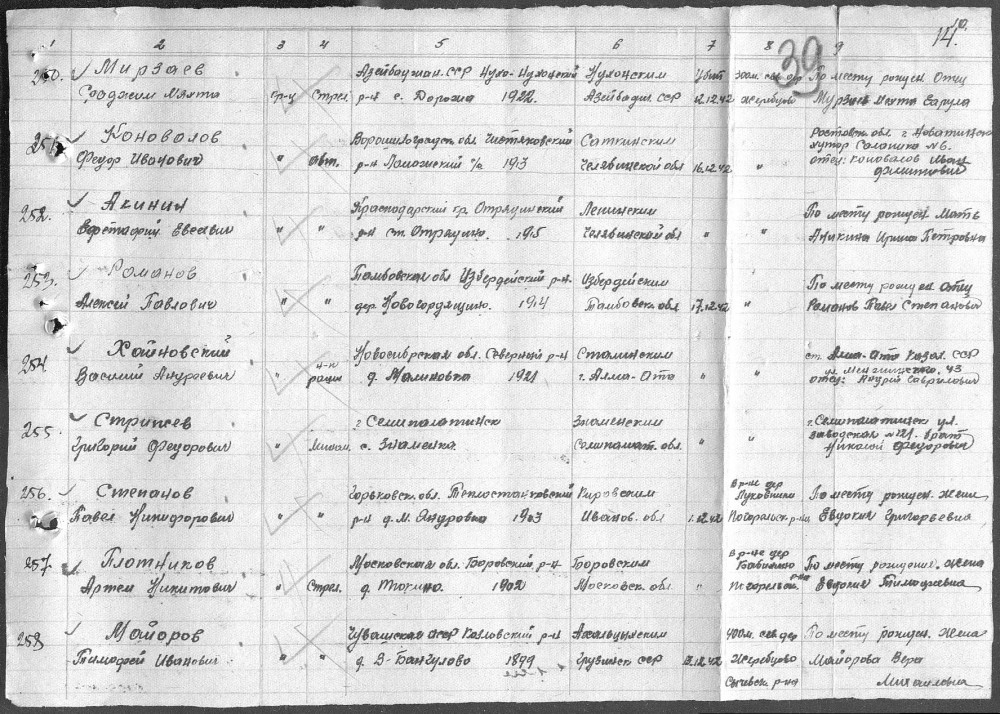 14.
39
1 2 3 4 5 6 7 8 9
250. Мирзаев Азейбоджан. ССР Нухо-Нухонский Нухонским Убит 300м. сев. дер По месту рожден. Отец
р-ц Стрел. р-н с. Дорожа 1922. Азейбадж. ССР 12.12.42 Жеребцово
251. Коновалов Ворошиловградск. обл. Чистяковский Саткинским Ростовск. обл. г. Новошахтинск
хутор Соколовка №6.
Федор Иванович " авт. р-н 1913 Челябинской обл 16.12.42 " отец: Коновалов Иван
252. Акинин Краснодарский кр. Отрадинский Ленинским По месту рожден. Мать
Евстафий Евсеевич " " р-н ст. Отрадно. 1915 Челябинской обл " " Аникина Ирина Петровна
253. Романов Тамбовская обл Избердейский р-н. Избердейским По месту рожден. отец
Алексей Павлович " " дер. 1914 Тамбовск. обл 17.12.42 " Романов Павел Степанович
254. Хайновский Новосибирская обл. Северный р-н Сталинским ст. Алма-Ата Казах. ССР
ул. Менжинского. 43
Василий Андреевич " рации д. Малиновка 1921 г. Алма-Ата " " отец: Андрей Гаврилович
255. Стрипсев г Семипалатинск Знаменским г. Семипалатинск ул.
Заводская №121. брат
Григорий Федорович " Мином. с. Знаменка Семипалат. обл. " " Николай Федорович
256. Степанов Горьковск. обл. Теплостановский Кировским В р-не дер
Павел Никифорович " " р-н д. М. Андровка 1903 Иванов. обл 1.12.42 Погорельск. р-на Евдокия Григорьевна
По месту рожден. жена
257. Плотников Московская обл. Боровский р-н Боровским в р-не дер
Артем Никитович " Стрел. д. Токино. 1902 Московск. обл. " Погорельск. р-на Евдокия Тимофеевна
По месту рождения. жена
258 Майоров Чувашская АССР Козловский р-н Ахалцыхским 400м. сев дер По месту рожден. жена
Тимофей Иванович " " д. В-Байгулово 1899 Грузинск ССР 12.42 Жеребцово Майорова Вера
Сычевск. р-на Михайловна